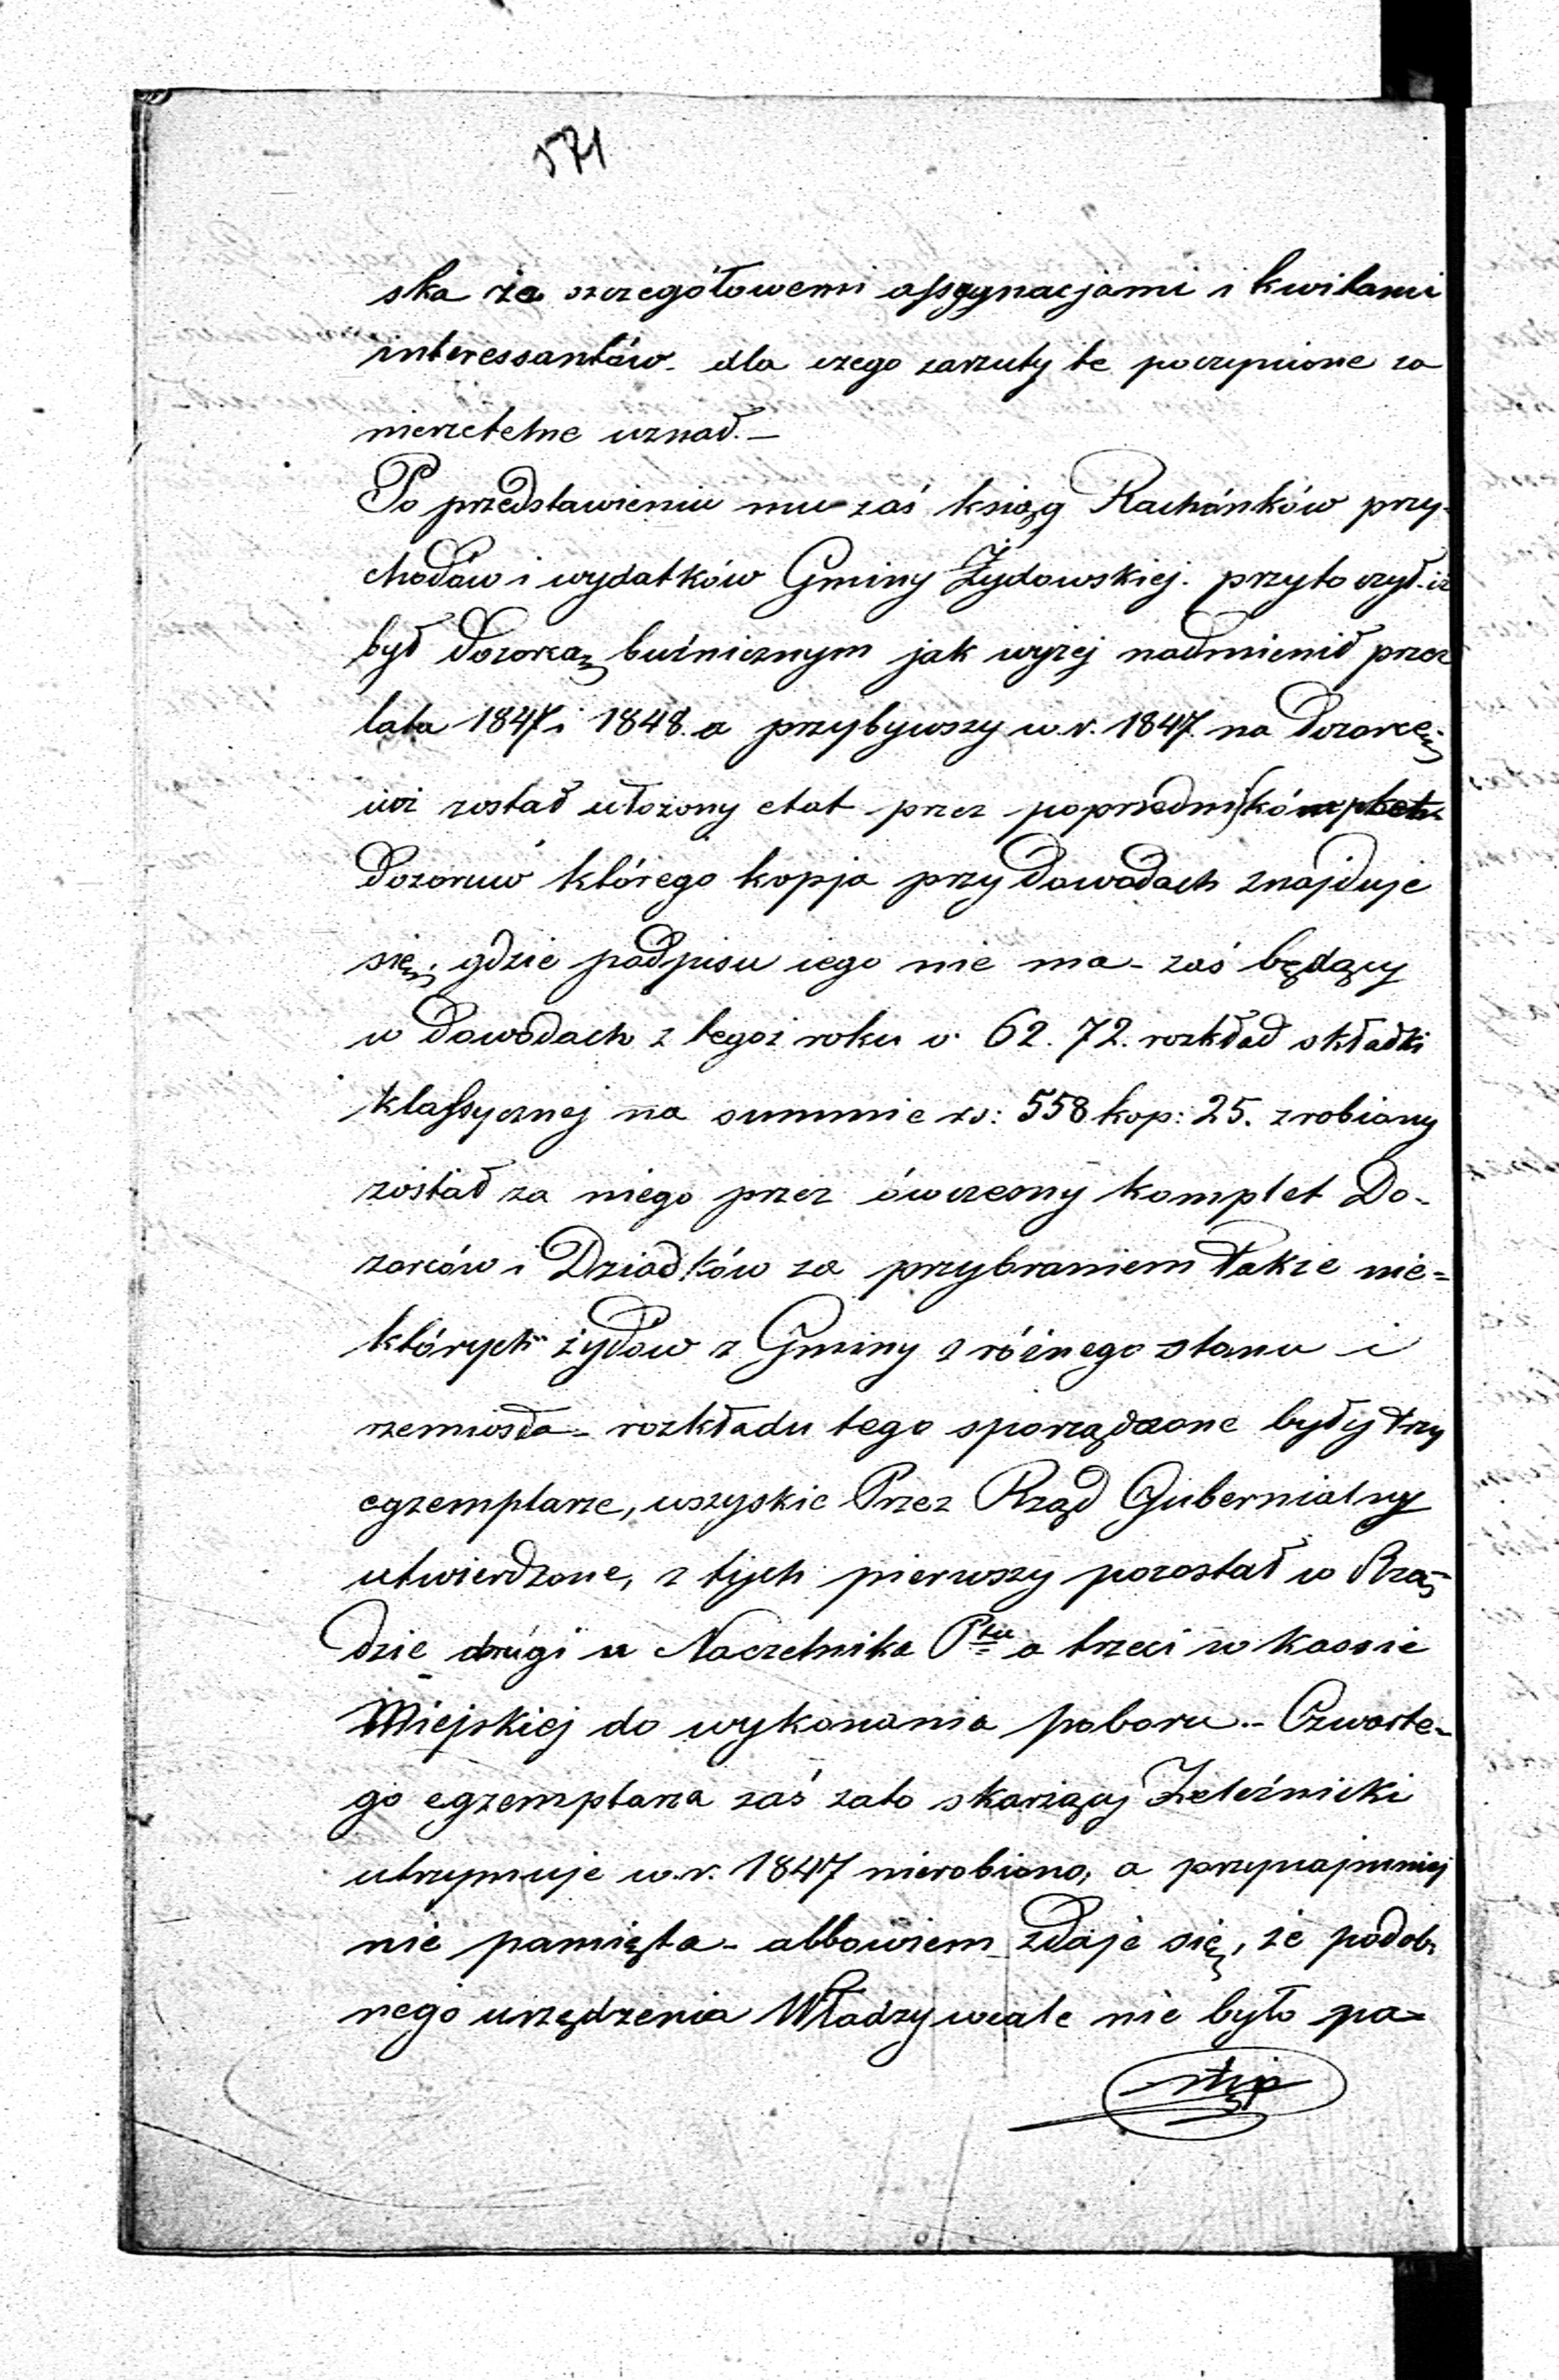 571
ska ze szczegółowemi assygnacjami i kwitami
interessantów. dla czego zarzuty te poczynione za
nierzetelne uznał. –
Po przedstawieniu mu zaś ksiąg Rachónków przy-
chodów i wydatków Gminy Żydowskiej. przytoczył. iż
był Dozorcą bużnicznym jak wyżej nadmienił przez
lata 1847 i 1848. a przybywszy w r. 1847 na Dozorcę
już został ułożony etat przez poprzedników
Dozoruw którego kopja przy Dowodach znajduje
się, gdzie podpisu iego nie ma – zaś będący
w Dowodach z tegoż roku v. 62. 72. rozkład składki
klassycznej na summie rs: 558 kop: 25. zrobiony
został za niego przez ówczesny komplet Do-
zorców i Dziadków za przybraniem Także nie=
których żydów z Gminy z różnego stanu i
rzemiosła – rozkładu tego sporządzone były trzy
egzemplarze, wszyskie Przez Rząd Gubernialny
utwierdzone, z tych pierwszy pozostał w Rzą-
dzie drugi u Naczelnika Ptu a trzeci w kassie
Miejskiej do wykonania poboru. – Czwarte-
go egzemplarza zaś zato skarżący Żeleźnicki
utrzymuje w r. 1847 nierobiono, a przynajmniej
nie pamięta – albowiem zdaje się, że podob-
nego urządzenia Władzy wcale nie było pa=